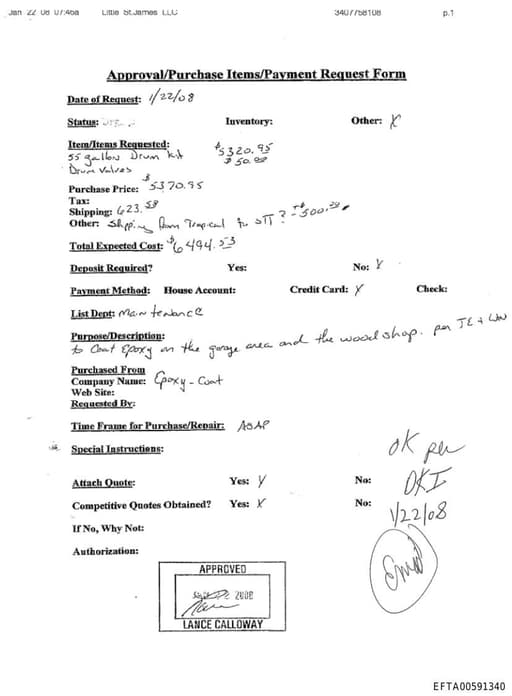 Jan 22 08 07:46a Little St.James LLC 3407758108 p.1
Approval/Purchase Items/Payment Request Form
Date of Request: 1/22/08
Status: Inventory: Other: X
Item/Items Requested:
55 gallon Drum kit $5320.95
Drum Valves $50.00
Purchase Price: $5370.95
Tax:
Shipping: 623.58
Other: Shipping from Tropical to STT? - $500.00
Total Expected Cost: $6494.53
Deposit Required? Yes: No: X
Payment Method: House Account: Credit Card: X Check:
List Dept: Maintenance
Purpose/Description:
to Coat Epoxy on the garage area and the wood shop. per JE +
Purchased From
Company Name: Epoxy-Coat
Web Site:
Requested By:
Time Frame for Purchase/Repair: ASAP
Special Instructions:
OK per
Attach Quote: Yes: Y No:
DKI
Competitive Quotes Obtained? Yes: X No:
1/22/08
If No, Why Not:
Authorization:
Email
APPROVED
2008
LANCE CALLOWAY
EFTA00591340